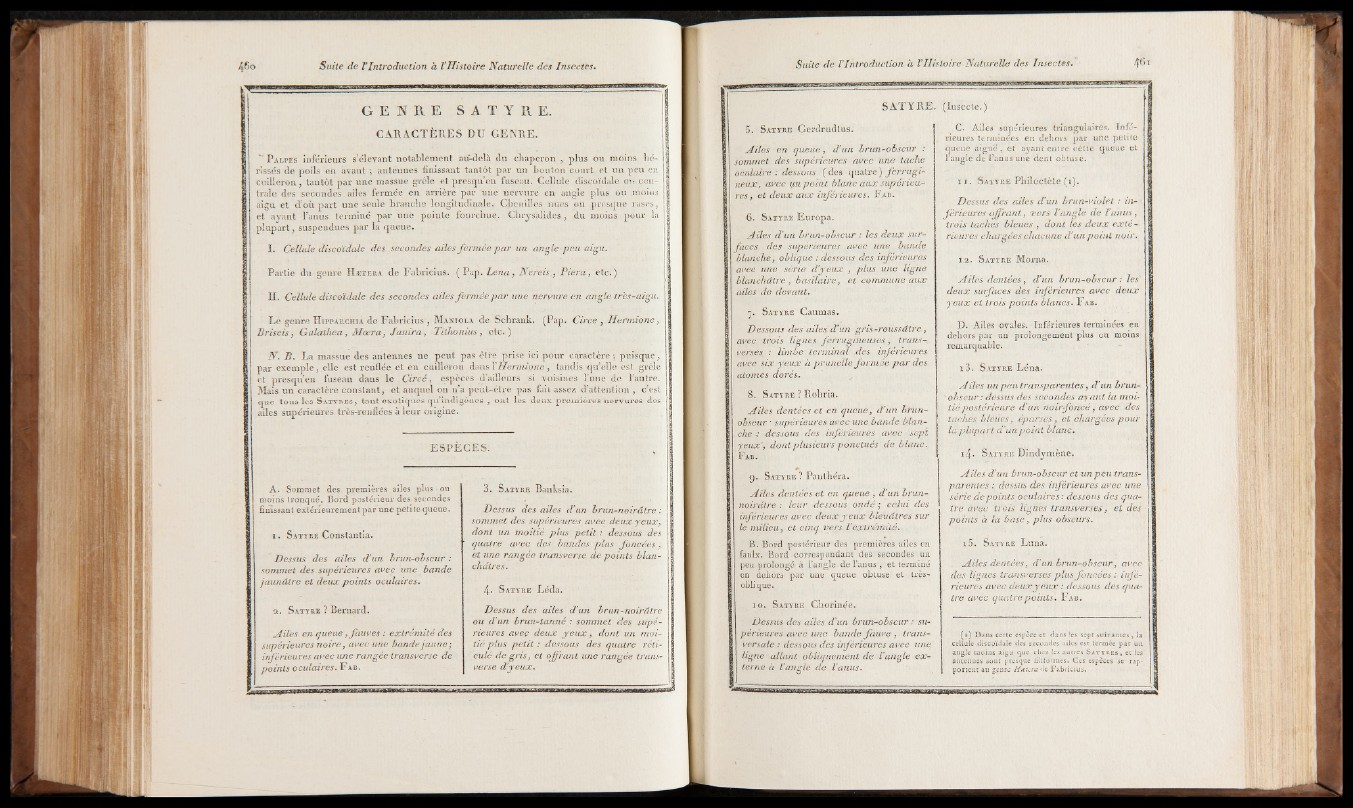 460 Suite de l'Introduction à l'Histoire Naturelle des Insectes.
GENRE SATYRE.
CARACTÈRES DU GENRE.
PALPES inférieurs s'élevant notablement au-delà du chaperon, plus ou moins hé-
rissés de poils en avant ; antennes finissant tantôt par un bouton court et un peu en
cuilleron, tantôt par une massue grêle et presqu'en fuseau. Cellule discoïdale ou cen-
trale des secondes ailes fermée en arrière par une nervure en angle plus ou moins
aigu et d'où part une seule branche longitudinale. Chenilles nues ou presque rases,
et ayant l'anus terminé par une pointe fourchue. Chrysalides, du moins pour la
plupart, suspendues par la queue.
I. Cellule discoïdale des secondes ailes fermée par un angle peu aigu.
Partie du genre HÆTERA de Fabricius. (Pap. Lena, Nereis, Piera, etc.)
II. Cellule discoïdale des secondes ailes fermée par une nervure en angle très-aigu.
Le genre HIPPARCHIA de Fabricius, MANIOLA de Schrank. (Pap. Circe, Hermione,
Briseis, Galathea, Mæra, Janira, Tithonius, etc.)
N. B. La massue des antennes ne peut pas être prise ici pour caractère ; puisque,
par exemple, elle est renflée et en cuilleron dans l'Hermione, tandis qu'elle est grêle
et presqu'en fuseau dans le Circé, espèces d'ailleurs si voisines l'une de l'autre.
Mais un caractère constant, et auquel on n'a peut-être pas fait assez d'attention, c'est
que tous les SATYRES, tant exotiques qu'indigènes, ont les deux premières nervures des
ailes supérieures très-renflées à leur origine.
ESPÈCES.
A. Sommet des premières ailes plus ou
moins tronqué. Bord postérieur des secondes
finissant extérieurement par une petite queue.
1. SATYRE Constantia.
Dessus des ailes d'un brun-obscur :
sommet des supérieures avec une bande
jaunâtre et deux points oculaires.
2. SATYRE ? Bernard.
Ailes en queue, fauves : extrémité des
supérieures noire, avec une bande jaune ;
inférieures avec une rangée transverse de
points oculaires. FAB.
3. SATYRE Banksia.
Dessus des ailes d'un brun-noirâtre :
sommet des supérieures avec deux yeux,
dont un moitié plus petit : dessous des
quatre avec des bandes plus foncées,
et une rangée transverse de points blan-
châtres.
4. SATYRE Léda.
Dessus des ailes d'un brun-noirâtre
ou d'un brun-tanné : sommet des supé-
rieures avec deux yeux, dont un moi-
tié plus petit : dessous des quatre réti-
culé de gris, et offrant une rangée trans-
verse d'yeux.
Suite de l'Introduction à l'Histoire Naturelle des Insectes. 461
SATYRE. (Insecte.)
5. SATYRE Gerdrudtus.
Ailes en queue, d'un brun-obscur :
sommet des supérieures avec une tache
oculaire : dessous (des quatre) ferrugi-
neux, avec un point blanc aux supérieu-
res, et deux aux inférieures. FAB.
6. SATYRE Europa.
Ailes d'un brun-obscur : les deux sur-
faces des supérieures avec une bande
blanche, oblique : dessous des inférieures
avec une série d'yeux, plus une ligne
blanchâtre, basilaire, et commune aux
ailes de devant.
7. SATYRE Caumas.
Dessous des ailes d'un gris-roussâtre,
avec trois lignes ferrugineuses, trans-
verses : limbe terminal des inférieures
avec six yeux à prunelle formée par des
atomes dorés.
8. SATYRE ? Rohria.
Ailes dentées et en queue, d'un brun-
obscur : supérieures avec une bande blan-
che : dessous des inférieures avec sept
yeux, dont plusieurs ponctués de blanc.
FAB.
9. SATYRE ? Panthéra.
Ailes dentées et en queue, d'un brun-
noirâtre : leur dessous ondé ; celui des
inférieures avec deux yeux bleuâtres sur
le milieu, et cinq vers l'extrémité.
B. Bord postérieur des premières ailes en
faulx. Bord correspondant des secondes un
peu prolongé à l'angle de l'anus, et terminé
en dehors par une queue obtuse et très-
oblique.
10. SATYRE Chorinée.
Dessus des ailes d'un brun-obscur : su-
périeures avec une bande fauve, trans-
versale : dessous des inférieures avec une
ligne allant obliquement de l'angle ex-
terne à l'angle de l'anus.
C. Ailes supérieures triangulaires. Infé-
rieures terminées en dehors par une petite
queue aiguë, et ayant entre cette queue et
l'angle de l'anus une dent obtuse.
11. SATYRE Philoctète (1).
Dessus des ailes d'un brun-violet : in-
férieures offrant, vers l'angle de l'anus,
trois taches bleues, dont les deux exté-
rieures chargées chacune d'un point noir.
12. SATYRE Morna.
Ailes dentées, d'un brun-obscur : les
deux surfaces des inférieures avec deux
yeux et trois points blancs. FAB.
D. Ailes ovales. Inférieures terminées en
dehors par un prolongement plus ou moins
remarquable.
13. SATYRE Léna.
Ailes un peu transparentes, d'un brun-
obscur : dessus des secondes ayant la moi-
tié postérieure d'un noir-foncé, avec des
taches bleues, éparses, et chargées pour
la plupart d'un point blanc.
14. SATYRE Dindymène.
Ailes d'un brun-obscur et un peu trans-
parentes : dessus des inférieures avec une
série de points oculaires : dessous des qua-
tre avec trois lignes transverses, et des
points à la base, plus obscurs.
15. SATYRE Luna.
Ailes dentées, d'un brun-obscur, avec
des lignes transverses plus foncées : infé-
rieures avec deux yeux : dessous des qua-
tre avec quatre points. FAB.
(1) Dans cette espèce et dans les sept suivantes, la
cellule discoïdale des secondes ailes est fermée par un
angle moins aigu que chez les autres SATYRES, et les
antennes sont presque filiformes. Ces espèces se rap-
portent au genre Hætera de Fabricius.